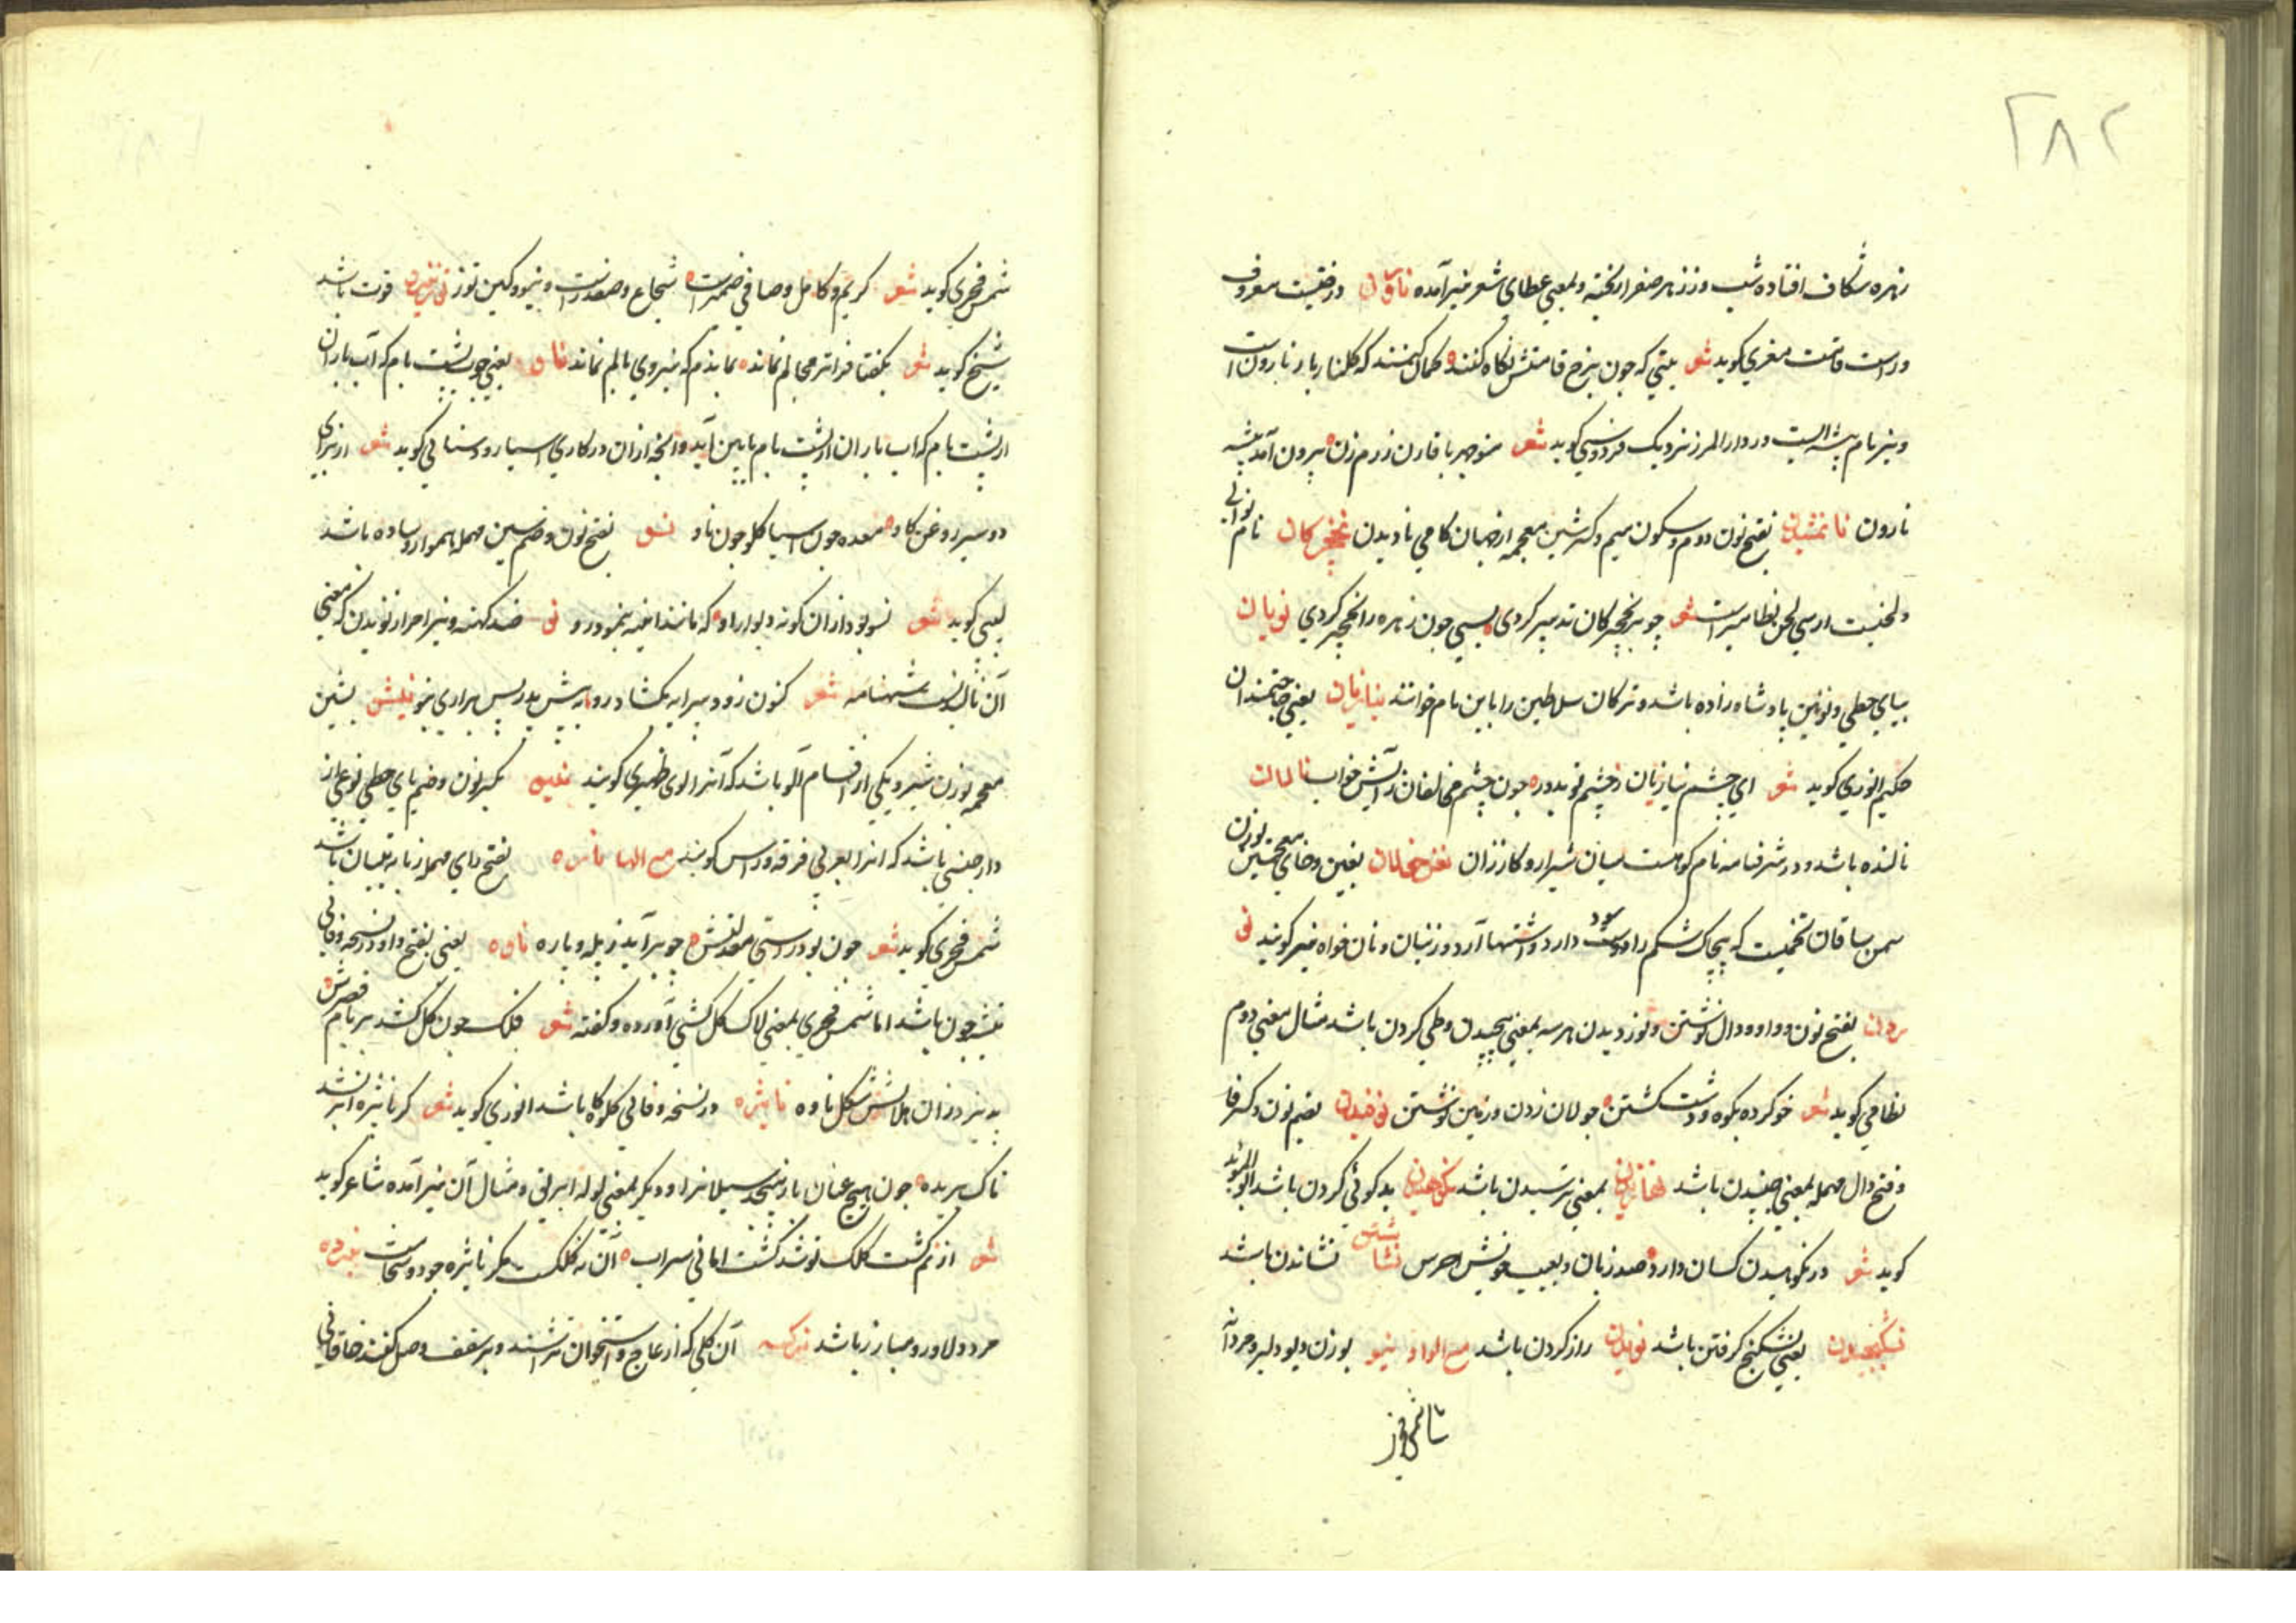 ۲۸۲
زهره شکاف افتاده شب وز زهر صفرا ریخته و بمعنی عطای شعر نیز آمده نارون درختیست معروف
و راست قامت مغری کوید شعر بتی که چون برخ قامتش نکاه کنند کمان کنند که کلنار بار نارون است
و نیز نام بیشه ایست در دار المرز نزدیک فردوسی کوید شعر منوچهر با قارن رزم زن برون آمد بیشه
نارون نانمشیدن بفتح نون دوم و سکون میم و کسر شین معجمه از جهان کامی نادیدن نخجیرکان نام نوایی
و لحنیست از سی لحن نظامیراست شعر چو بر نخجیرکان تدبیر کردی بسی چون زهره را نخجیر کردی نویان
بیای حطی و نویین پادشاه زاده باشد و ترکان سلاطین را باین نام خوانند نیازیان یعنی حاجتمندان
حکیم انوری کوید شعر ای چشم نیازیان ز چشم تو بدور چون چشم مخالفان ز آتش خواب نالان
نالنده باشد و در شرفنامه نام کوهست میان شیراز و کازران نغنخلان بغین و خای معجمتین بوزن
سمن ساقان تخمیست که پیچاک شکم را سود دارد و اشتها آرد و زنیان و نان خواه نیز کویند نو
ردن بفتح نون و واو و دال نوشتن و نوردیدن هر سه بمعنی پیچیدن و طی کردن باشد مثال معنی دوم
نظامی کوید شعر خو کرده بکوه و دشت کشتن جولان زدن و زمین نوشتن نوفیدن بضم نون و کسر فا
و فتح دال مهمله بمعنی جنبیدن باشد نهازیدن بمعنی ترسیدن باشد نکوهیدن بدکوئی کردن باشد ابو الموید
کوید شعر در نکوهیدن کسان دارد صد زبان و بعیب خویش اخرس نشاستن نشاندن باشد
نشکنجیدن یعنی نشکنج کرفتن باشد نویدن راز کردن باشد مع الواو نیو بوزن دیو دلیر و مردآ
شمس فخری کوید شعر کریم و کامل و صافی ضمیرست شجاع و صفدرست و نیو و کین توز نیرو قوت باشد
شیخ کوید شعر بکفتا فراتر مجالم نماند بماندم که نیروی بالم نماند ناو یعنی چوب پشت بام که آب باران
از پشت بام که اب باران از پشت بام بایین آید و آنچه از ان در کاری اسیا رود سنائی کوید شعر از برای
دو سیر روغن کاو معده چون اسیا کلو چون ناو نسو بفتح نون و ضم سین مهمله هموار و ساده باشد
لبیبی کوید شعر نسو بود از ان کونه دیوار او که مانند اینه بنمود رو نو ضد کهنه و نیز امر از نویدن که معنی
آن نالیدنست شهنامه شعر کنون زود بیرایه بکشا و رو به پیش پدر پس بزاری بنو نیشو بشین
معجمه بوزن نیرو یکی از اقسام آلو باشد که آنرا آلوی طبری کویند نیو بکسر نون و ضم یای حطی نوعی از
دارچینی باشد که انرا بعربی قرفه وارس کویند مع الها ناره بفتح رای مهمله زبانه قپان باشد
شمس فخری کوید شعر چون بود راستی معدلتش چو بر آید ز پله و پاره ناوه یعنی بفتح واو در نسخه وفائی
نیشچون باشد اما شمس فخری بمعنی لاک کل کشی آورده و کفته شعر فلک چون کل کشد بر بام قصرش
بدین دزدان هلالش شکل ناوه نایژه در نسخه وفائی کلوکاه باشد انوری کوید شعر کر نایژه ابر نشد
پاک بریده چون هیچ عنان باز نپیچد سیلانرا و دیکر بمعنی لوله ابریق و مثال آن نیز آمده شاعر کوید
شعر از نم کشت کلک تو شد کشت امانی سیراب آن نه کلکست مکر نایژه جود و سخاست نبرده
مرد دلاور و مبارز باشد نیرکسه آن کلی که از عاج و استخوان تراشند و بر سقف وصل کنند خاقانی